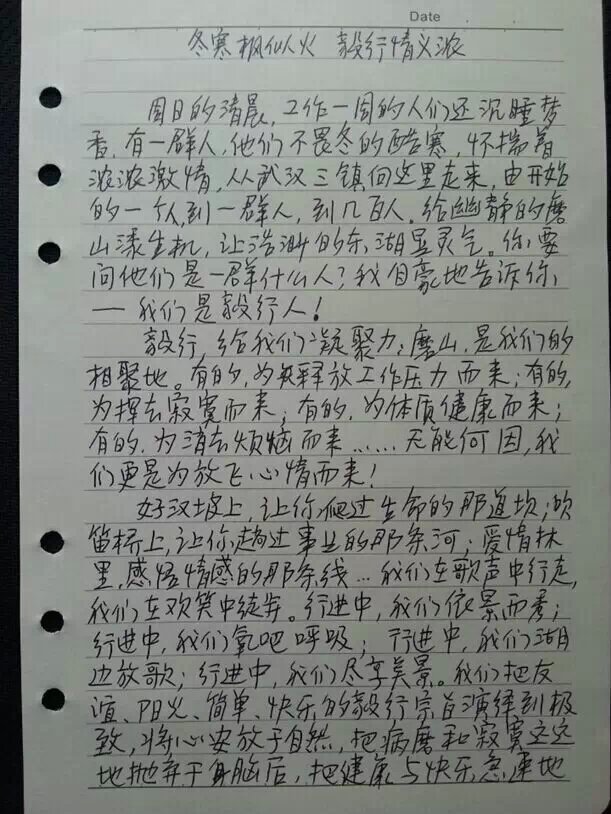 Date
冬寒枫似火 毅行情义浓
周日的清晨,工作一周的人们还沉睡梦
香,有一群人,他们不畏冬的酷寒,怀揣着
浓浓激情,从武汉三镇向这里走来,由开始
的一个人到一群人,到几百人。给幽静的磨
山添生机,让浩渺的东湖显灵气。你要
问他们是一群什么人?我自豪地告诉你,
—我们是毅行人!
毅行,给我们凝聚力;磨山,是我们的
相聚地。有的,为释放工作压力而来;有的,
为挥去寂寞而来;有的,为体质健康而来;
有的,为消去烦恼而来……无能何因,我
们更是为放飞心情而来!
好汉坡上,让你爬过生命的那道坎;吹
笛桥上,让你趟过事业的那条河;爱情林
里,感悟情感的那条线…我们在歌声中行走,
我们在欢笑中徒步。行进中,我们依景而秀;
行进中,我们氧吧呼吸;行进中,我们湖
边放歌;行进中,我们尽享美景。我们把友
谊、阳光、简单、快乐的毅行宗旨演绎到极
致,将心安放于自然,把病魔和寂寞远远
地抛弃于身脑后,把健康与快乐急速地